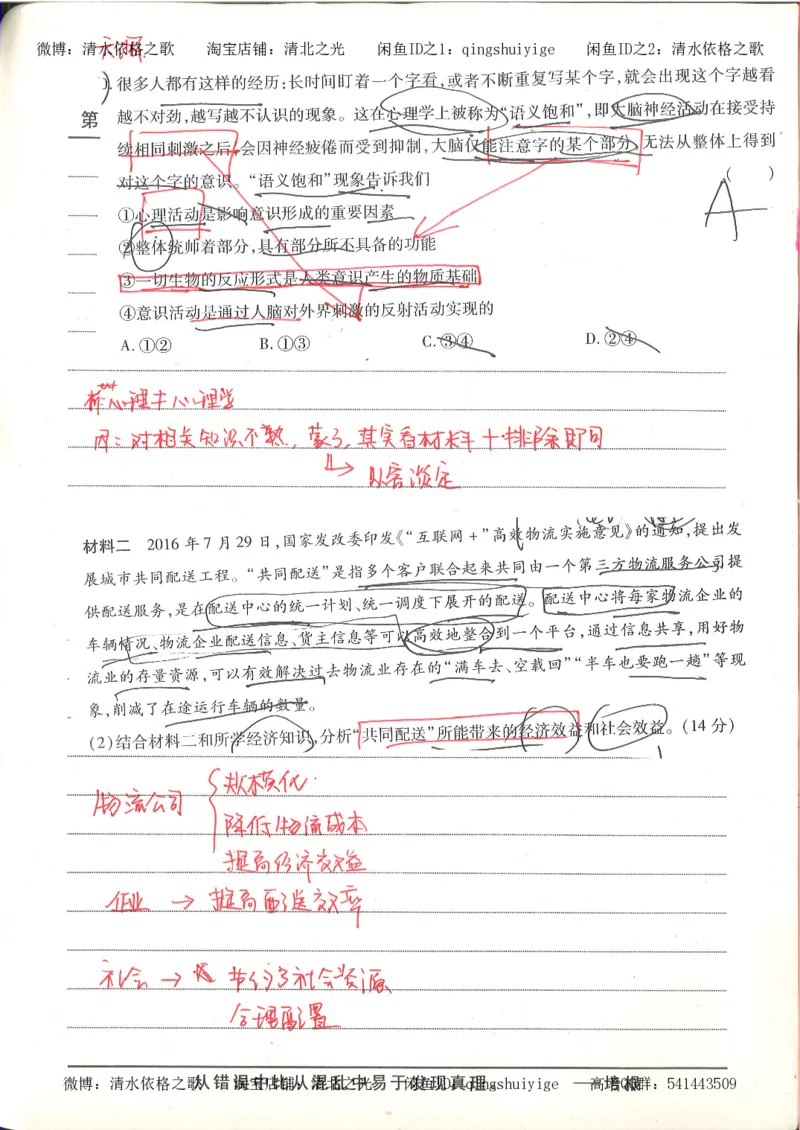 微博：清水依格之歌 淘宝店铺：清北之光 闲鱼ID之1：qingshuiyige 闲鱼ID之2：清水依格之歌
很多人都有这样的经历：长时间盯着一个字看，或者不断重复写某个字，就会出现这个字越看
第
越不对劲，越写越不认识的现象。这在心理学上被称为“语义饱和”，即大脑神经活动在接受持
续相同刺激之后，会因神经疲倦而受到抑制，大脑仅能注意字的某个部分，无法从整体上得到
对这个字的意识。“语义饱和”现象告诉我们 （ ）
A
①心理活动是影响意识形成的重要因素
②整体统帅着部分，具有部分所不具备的功能
③一切生物的反应形式是人类意识产生的物质基础
④意识活动是通过人脑对外界刺激的反射活动实现的
A. ①② B. ①③ C. ③④ D. ②④
心理学
因：对相关知识不熟，蒙了，其实看材料+排除即可
↳ 以客淡定
材料二 2016年7月29日，国家发改委印发《“互联网+”高效物流实施意见》的通知，提出发
展城市共同配送工程。“共同配送”是指多个客户联合起来共同由一个第三方物流服务公司提
供配送服务，是在配送中心的统一计划、统一调度下展开的配送。配送中心将每家物流企业的
车辆情况、物流企业配送信息、货主信息等可以高效地整合到一个平台，通过信息共享，用好物
流业的存量资源，可以有效解决过去物流业存在的“满车去、空载回”“半车也要跑一趟”等现
象，削减了在途运行车辆的数量。
(2)结合材料二和所学经济知识，分析“共同配送”所能带来的经济效益和社会效益。(14分)
规模化
物流公司
降低物流成本
提高经济效益
企业 → 提高配送效率
社会 → 节约了社会资源
合理配置
微博：清水依格之歌 淘宝店铺：清北之光 闲鱼ID：qingshuiyige 高考QQ群：541443509
从错误中比从混乱中易于发现真理。 ——培根